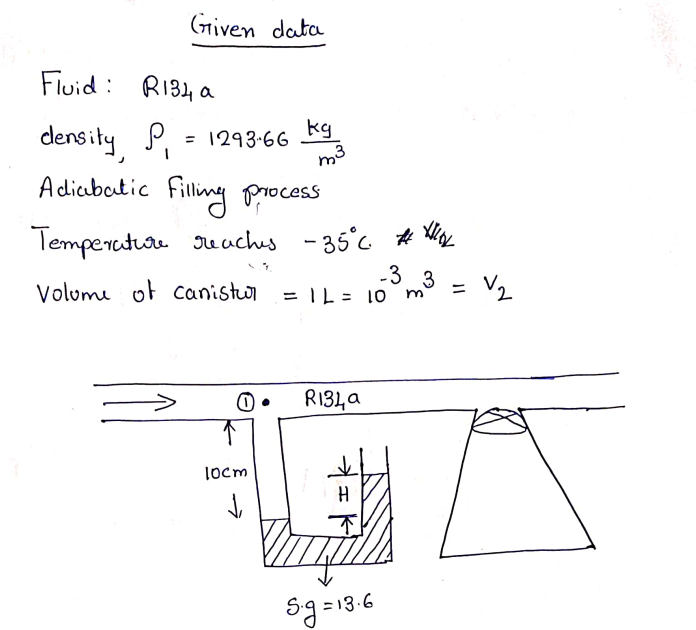 Given data
Fluid : R134a
density, ρ₁ = 1293.66 kg/m³
Adiabatic Filling process
Temperature reaches -35°C
Volume of canister = 1L = 10⁻³ m³ = V₂
① R134a
10cm
H
S.g = 13.6